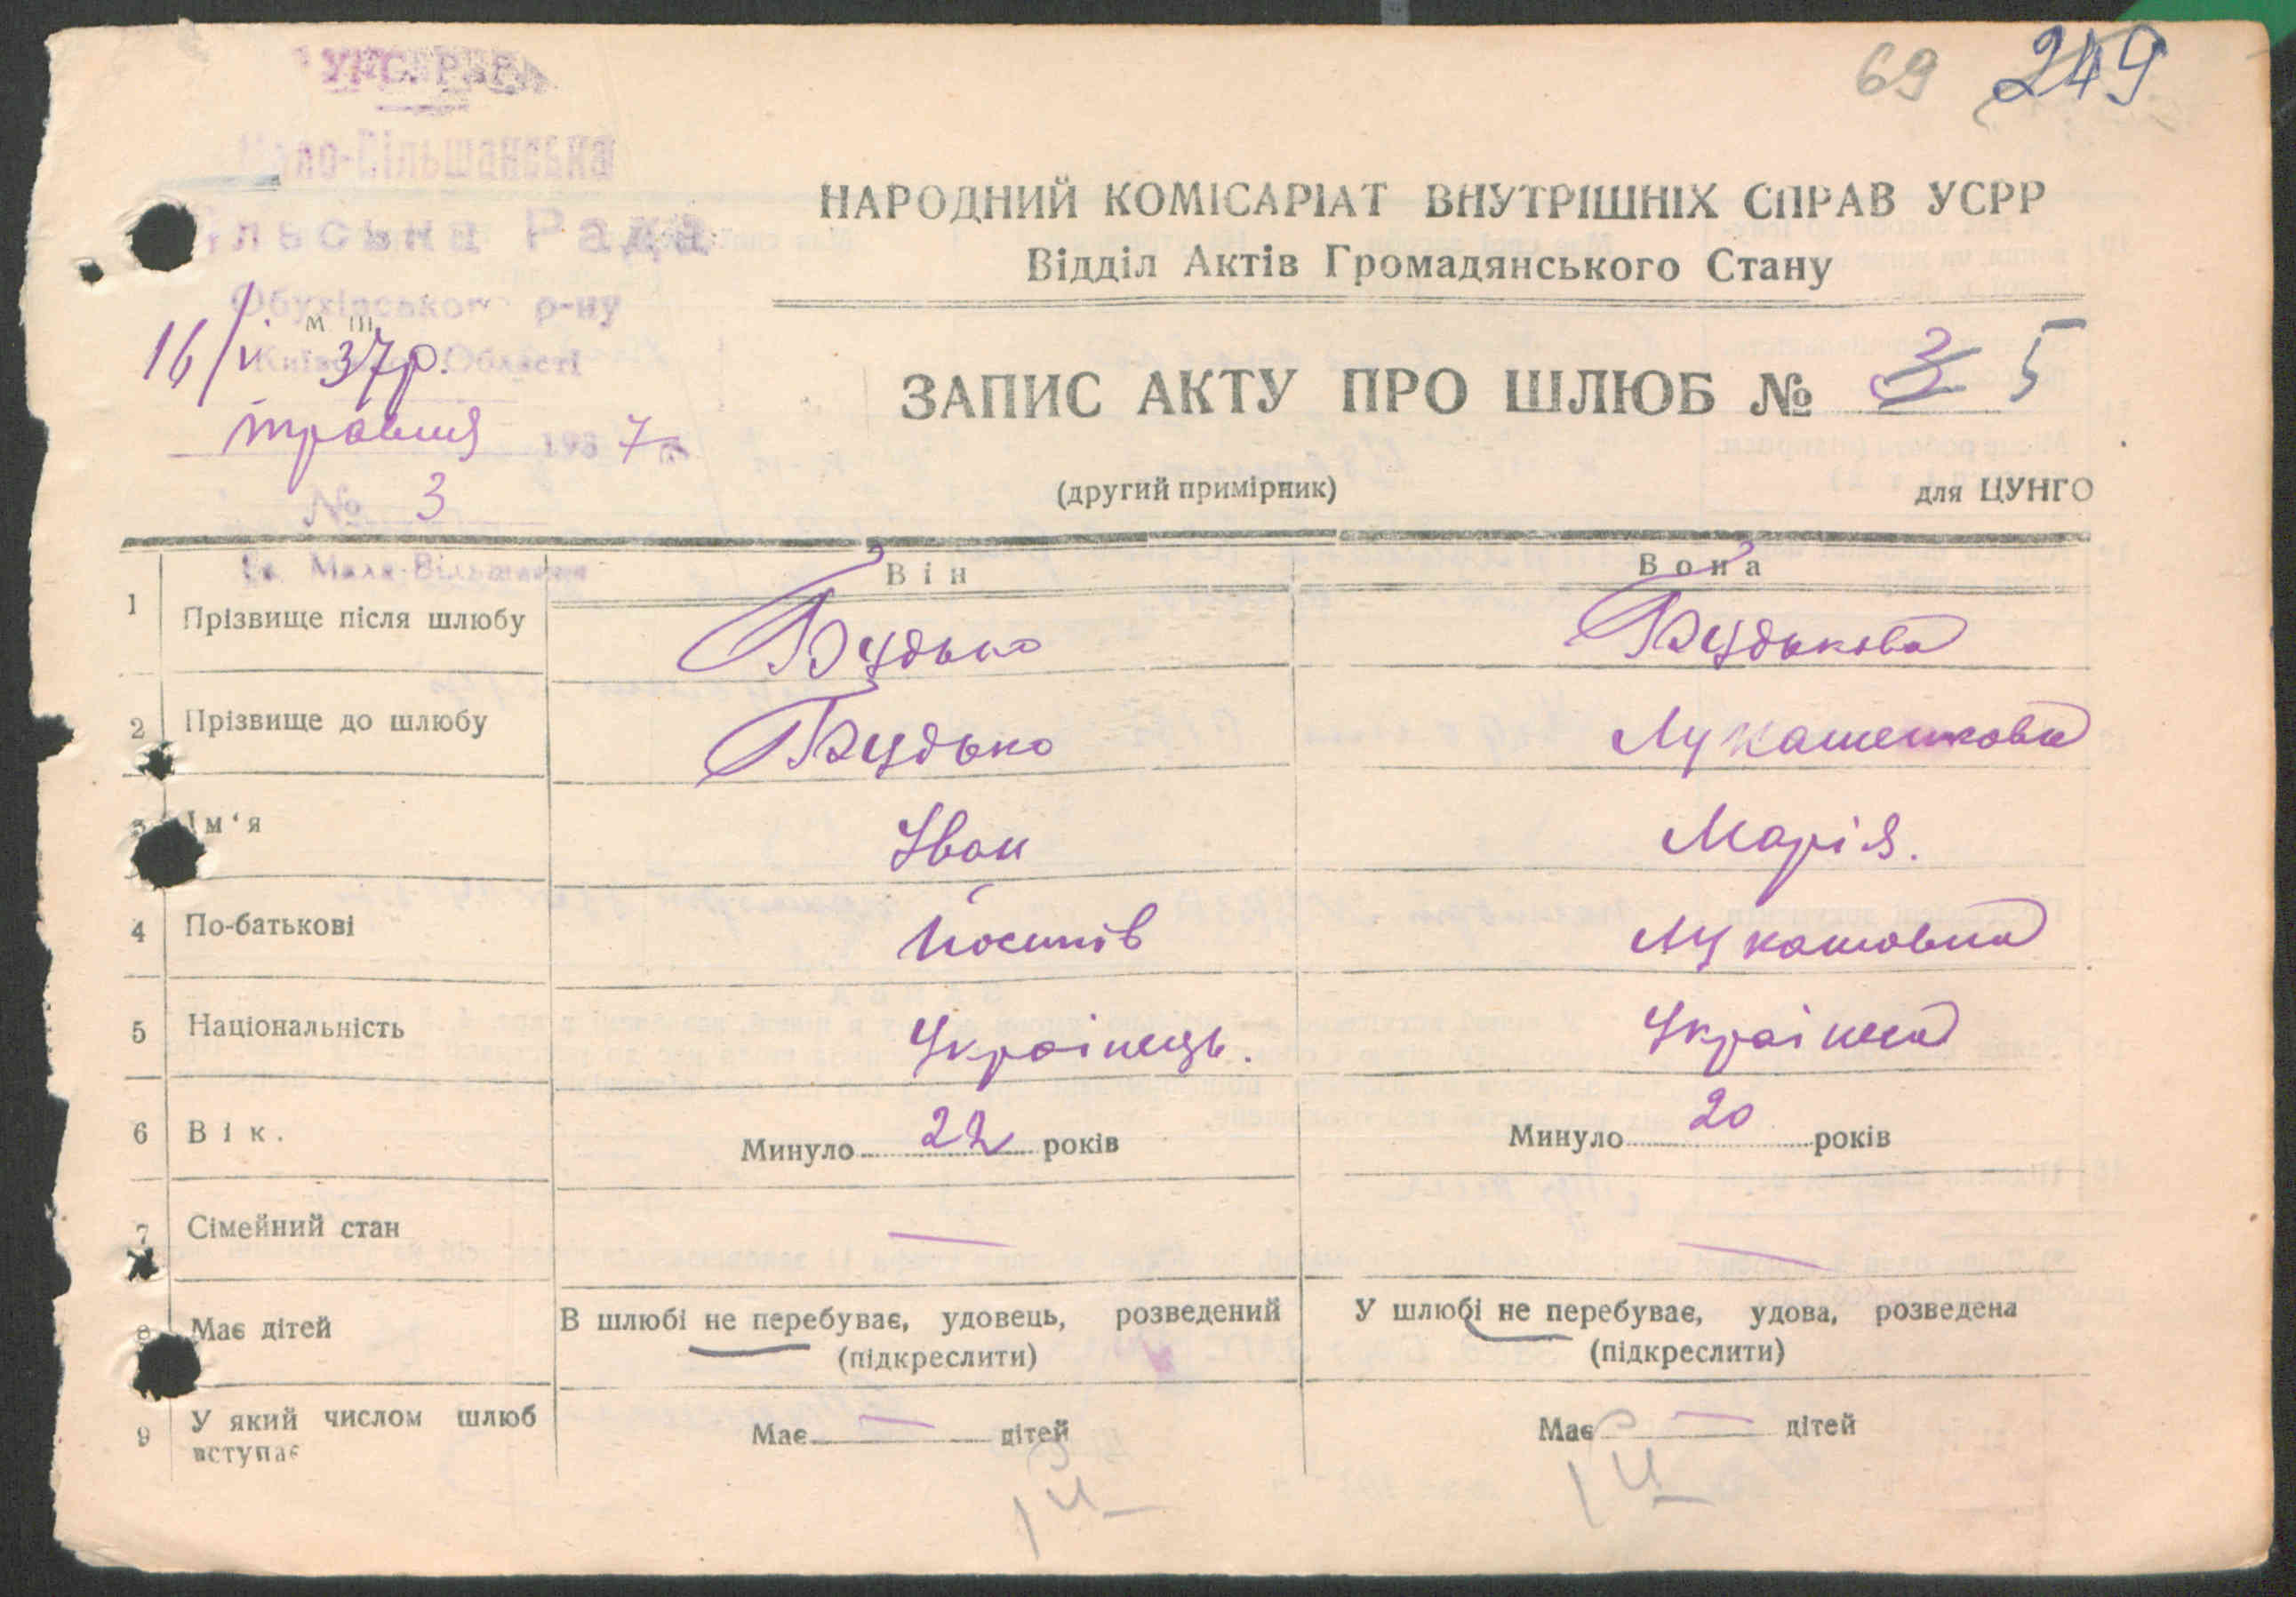 УРС.Р.
69 249
Мало-Вільшанська
Сільська Рада
НАРОДНИЙ КОМІСАРІАТ ВНУТРІШНІХ СПРАВ УСРР
Відділ Актів Громадянського Стану
Обухівського р-ну
М. Ш.
Київської Області
16/V 37р.
ЗАПИС АКТУ ПРО ШЛЮБ № 3 5
травня 1937
№ 3
(другий примірник) для ЦУНГО
с. Мала-Вільшанка
Він Вона
1 Прізвище після шлюбу Будько Будькова
2 Прізвище до шлюбу Будько Лукашенкова
3 Ім‘я Іван Марія.
4 По-батькові Йосипів Лукашовна
5 Національність Українець. Українка
6 Вік. Минуло 22 років Минуло 20 років
7 Сімейний стан — —
8 Має дітей В шлюбі не перебуває, удовець, розведений У шлюбі не перебуває, удова, розведена
(підкреслити) (підкреслити)
9 У який числом шлюб Має — дітей Має — дітей
вступає